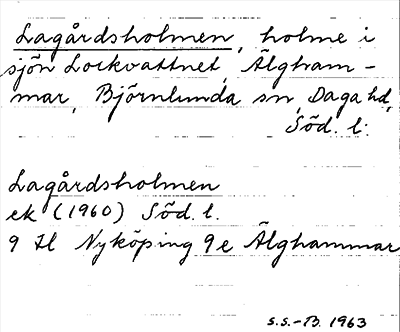 Lagårdsholmen, holme i
sjön Lockvattnet, Älgham-
mar, Björnlunda sn, Daga hd,
Söd. l.
Lagårdsholmen
ek (1960) Söd. l.
9 H Nyköping 9e Älghammar
S.S.-B. 1963